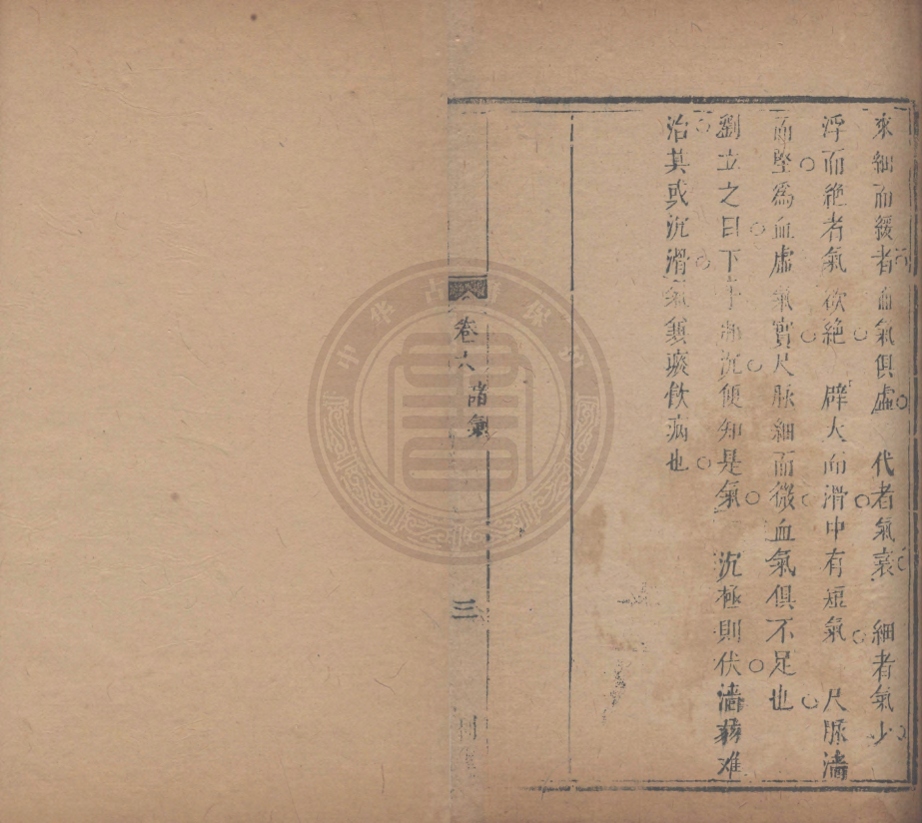 來細而緩者血氣俱虛 代者氣衰 細者氣少
浮而絶者氣欲絶 辟大而滑中有短氣 尺脈濇
而堅爲血虛氣實尺脈細而微血氣俱不足也
劉立之曰下手脈沉便知是氣 沉極則伏濇弱难
治其或沉滑氣兼痰飲病也
卷六 諸氣
三
中华古籍保护